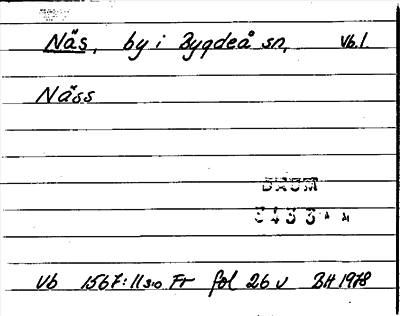 Näs, by i Bygdeå sn, Vb.l.
Näss
DAUM
3433
Vb 1567:11 s.o Fr fol 26 v BH 1978